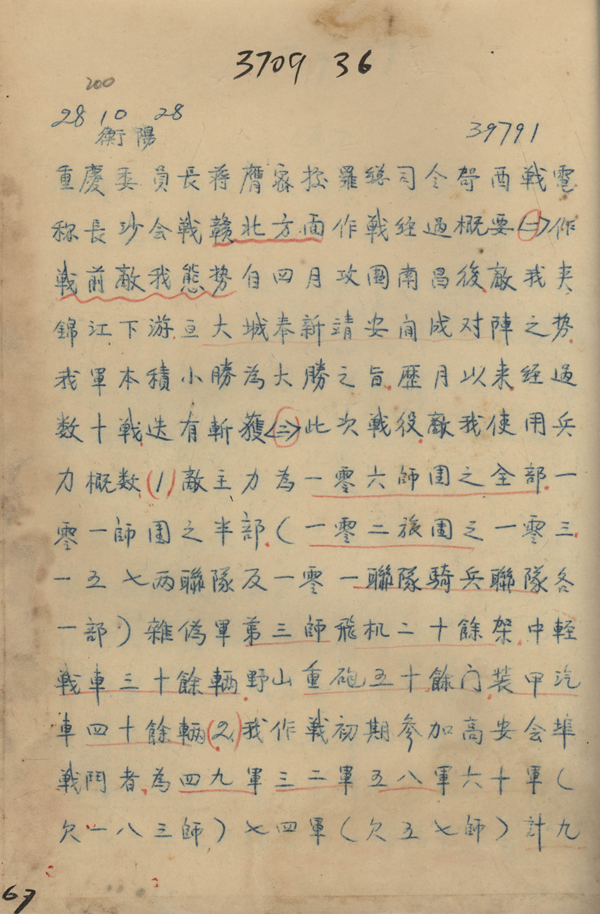 3709 36
200
28 10 28
衡陽
39791
重慶委員長蔣膺密據羅總司令卓酉戦電
称長沙会戦贛北方面作戦经過概要㈠作
戦前敵我態势自四月攻圍南昌後敵我夹
錦江下游亘大城奉新靖安间成对陣之势
我軍本積小勝為大勝之旨歷月以来经過
数十戦迭有斬獲㈡此次戦役敵我使用兵
力概数(1)敵主力為一零六師團之全部一
零一師團之半部(一零二旅團之一零三
一五七両聯隊及一零一聯隊騎兵聯隊各
一部)雜偽軍第三師飛机二十餘架中輕
戦車三十餘輌野山重砲五十餘门装甲汽
車四十餘輌(2)我作戦初期参加高安会埠
戦鬥者為四九軍三二軍五八軍六十軍(
欠一八三師)七四軍(欠五七師)計九
67